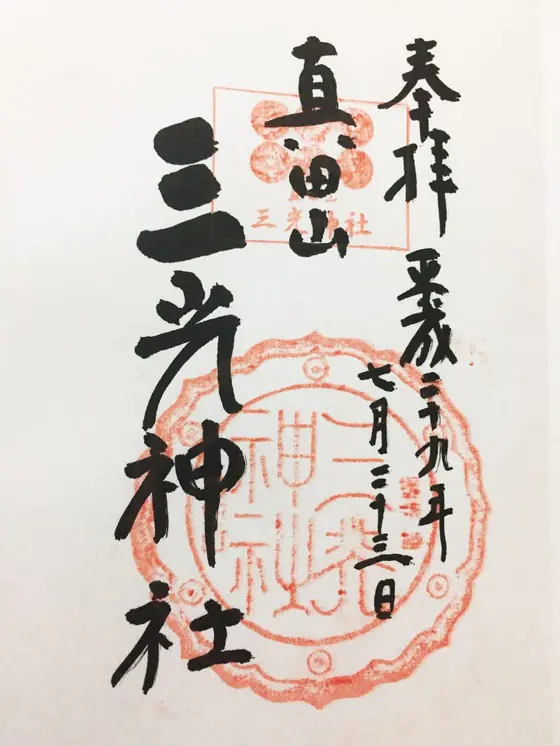 奉拝 平成二十九年
七月二十三日
真田山
三光神社
三光神社
三光神社